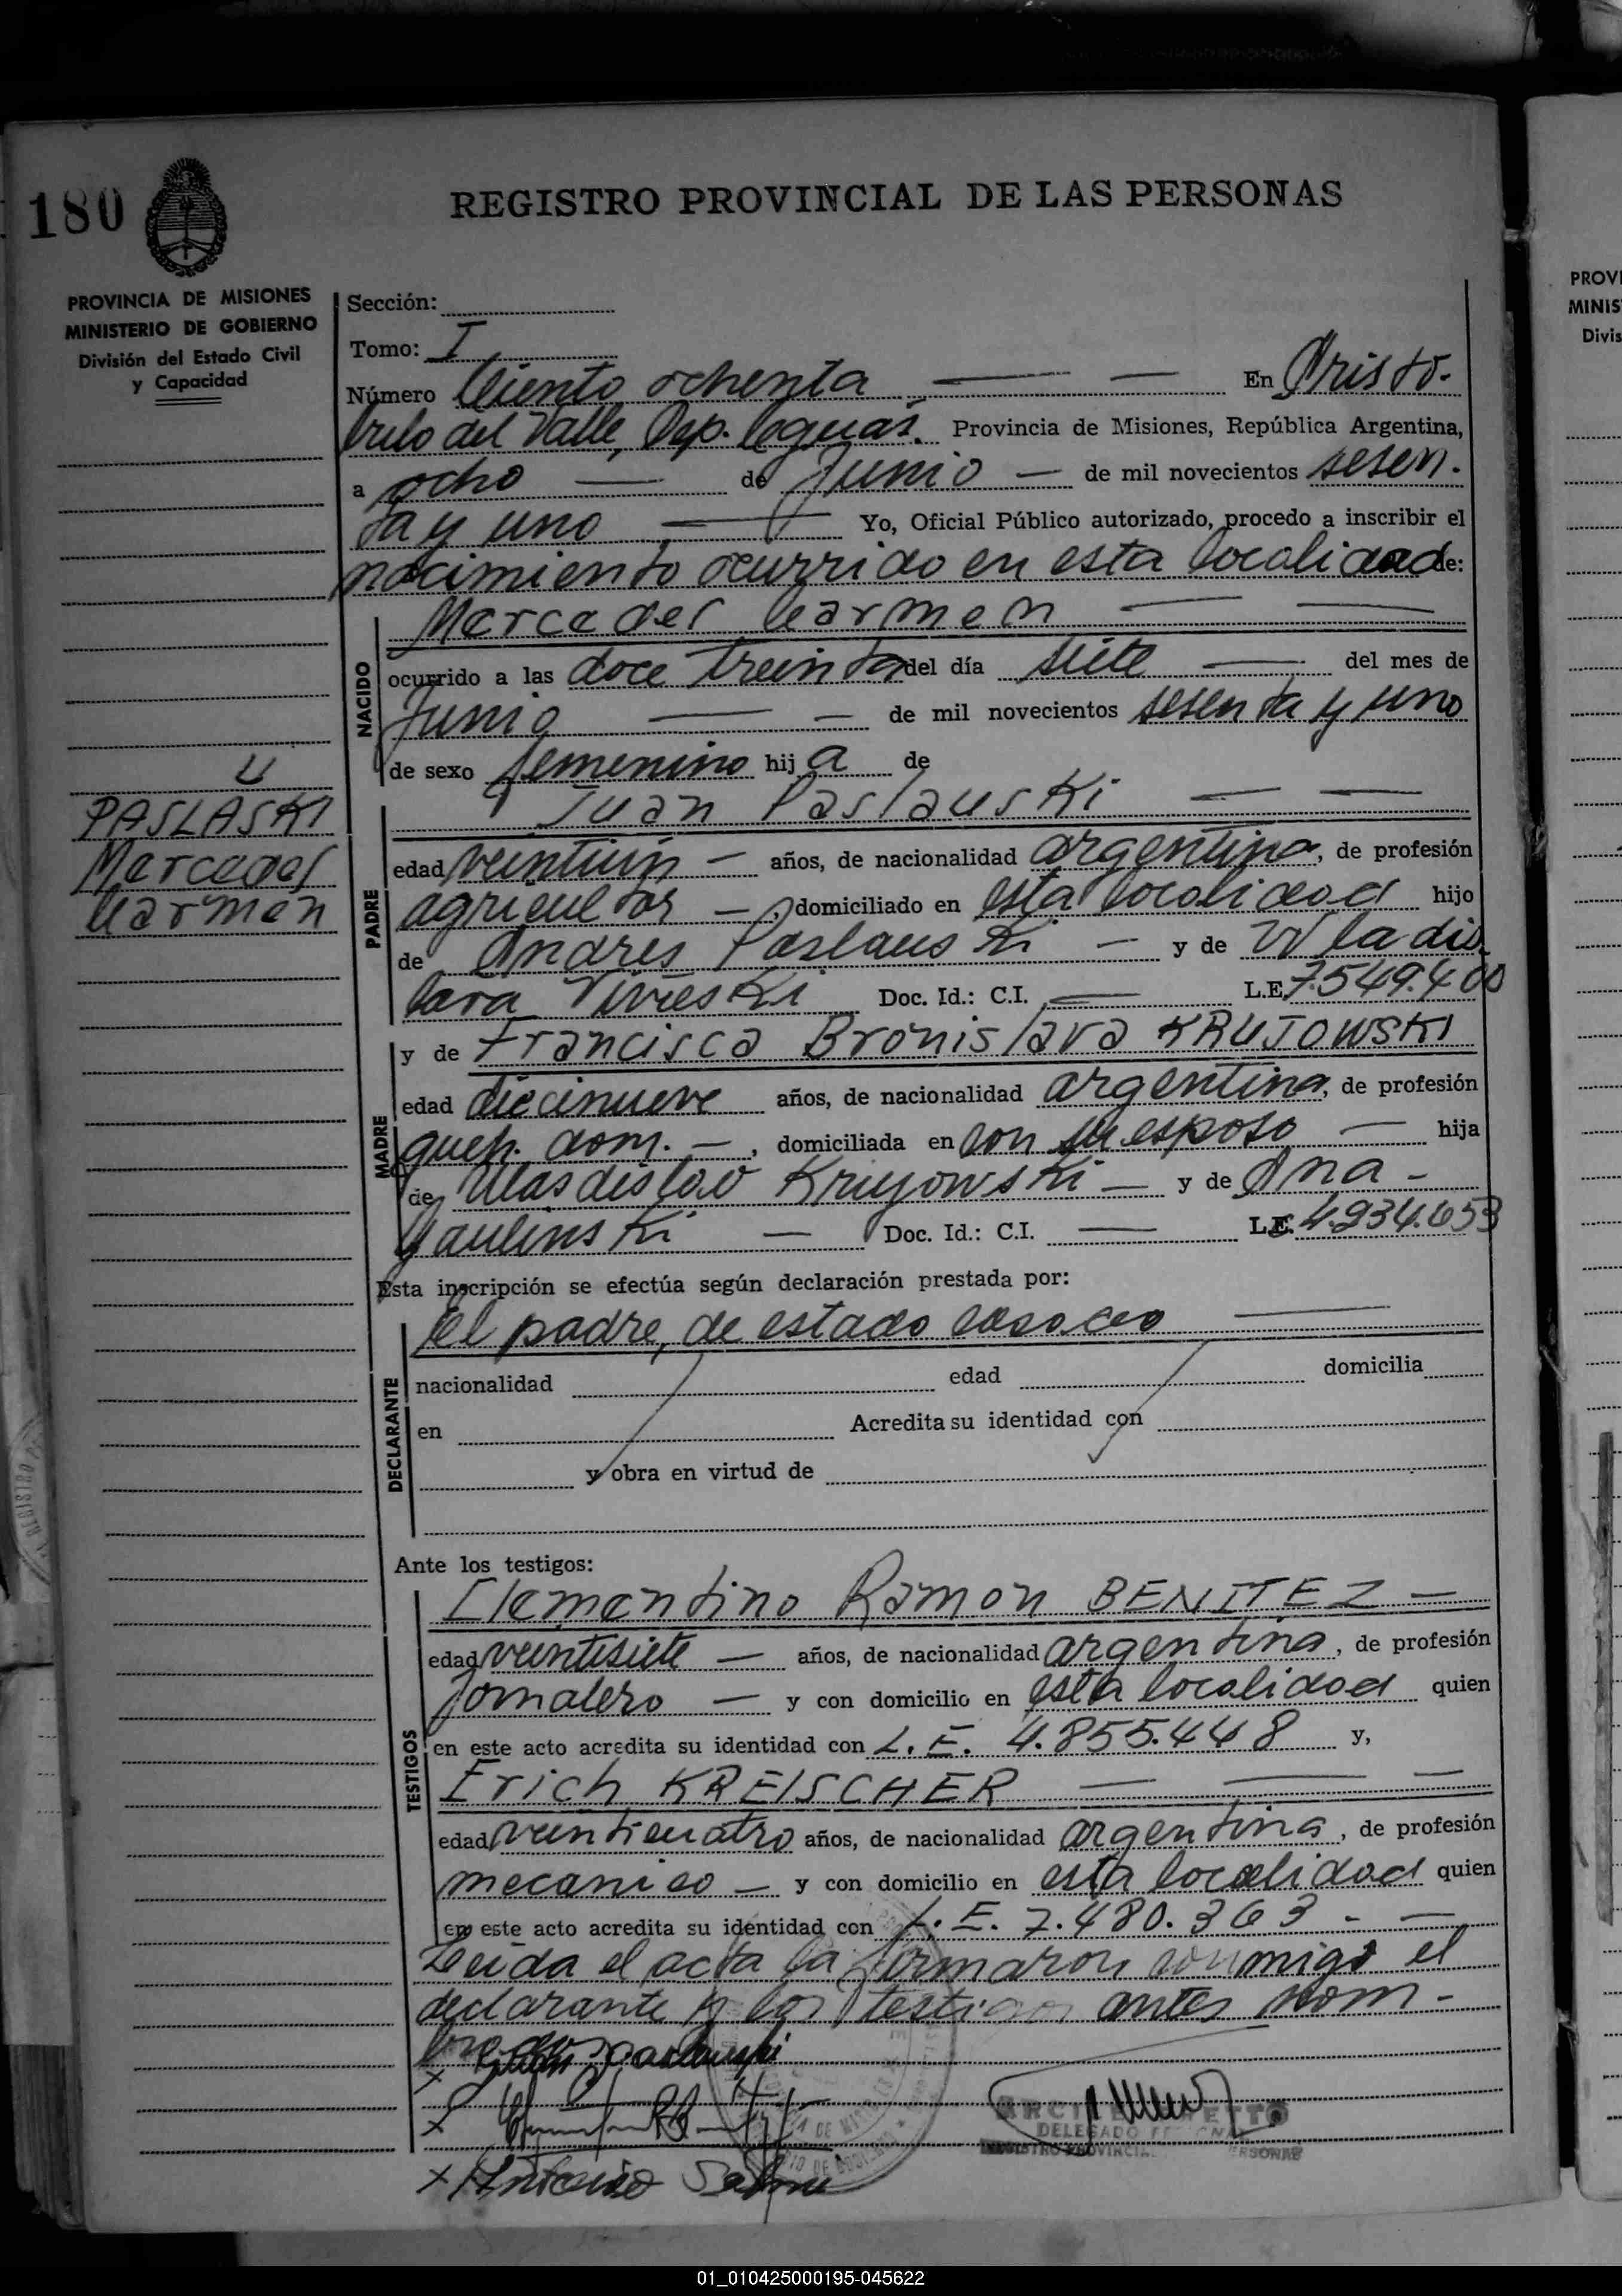 180
REGISTRO PROVINCIAL DE LAS PERSONAS
PROVINCIA DE MISIONES
MINISTERIO DE GOBIERNO
División del Estado Civil
y Capacidad
Sección:
Tomo: I
Número Ciento ochenta — — En Aristó-
bulo del Valle, Dep. Coguas. Provincia de Misiones, República Argentina,
a ocho — de Junio — de mil novecientos sesen-
ta y uno — Yo, Oficial Público autorizado, procedo a inscribir el
nacimiento ocurrido en esta localidad de:
Mercedes Carmen — —
NACIDO
ocurrido a las doce treinta del día siete — del mes de
Junio — — de mil novecientos sesenta y uno
de sexo femenino hija de
U
PASLASKI
Mercedes
Carmen
Juan Paslauski — —
PADRE
edad veintiún — años, de nacionalidad argentina, de profesión
agricultor —, domiciliado en esta localidad hijo
de Andrés Paslauski — y de Wladis
lava Doc. Id.: C.I. — L.E. 7.549.400
y de Francisca Bronislava KRUJOWSKI
MADRE
edad diecinueve años, de nacionalidad argentina, de profesión
queh. dom. —, domiciliada en con su esposo — hija
de Ulasdislao Krujowski — y de Ana -
Yaulinski — Doc. Id.: C.I. — L.E. 4.234.653
Esta inscripción se efectúa según declaración prestada por:
El padre, de estado casado —
DECLARANTE
nacionalidad edad domicilia
en Acredita su identidad con
y obra en virtud de
Ante los testigos:
Clementino Ramon BENITEZ —
TESTIGOS
edad veintisiete — años, de nacionalidad argentina, de profesión
jornalero — y con domicilio en esta localidad quien
en este acto acredita su identidad con L. E. 4.855.448 y,
Erich KREISCHER — — —
edad veinticuatro años, de nacionalidad argentina, de profesión
mecanico — y con domicilio en esta localidad quien
en este acto acredita su identidad con L. E. 7.480.363 - —
Leída el acta la firmaron conmigo el
declarante y los testigos antes nom-
brados
DELEGADO
PROV
MINIS
Divis
01_010425000195-045622